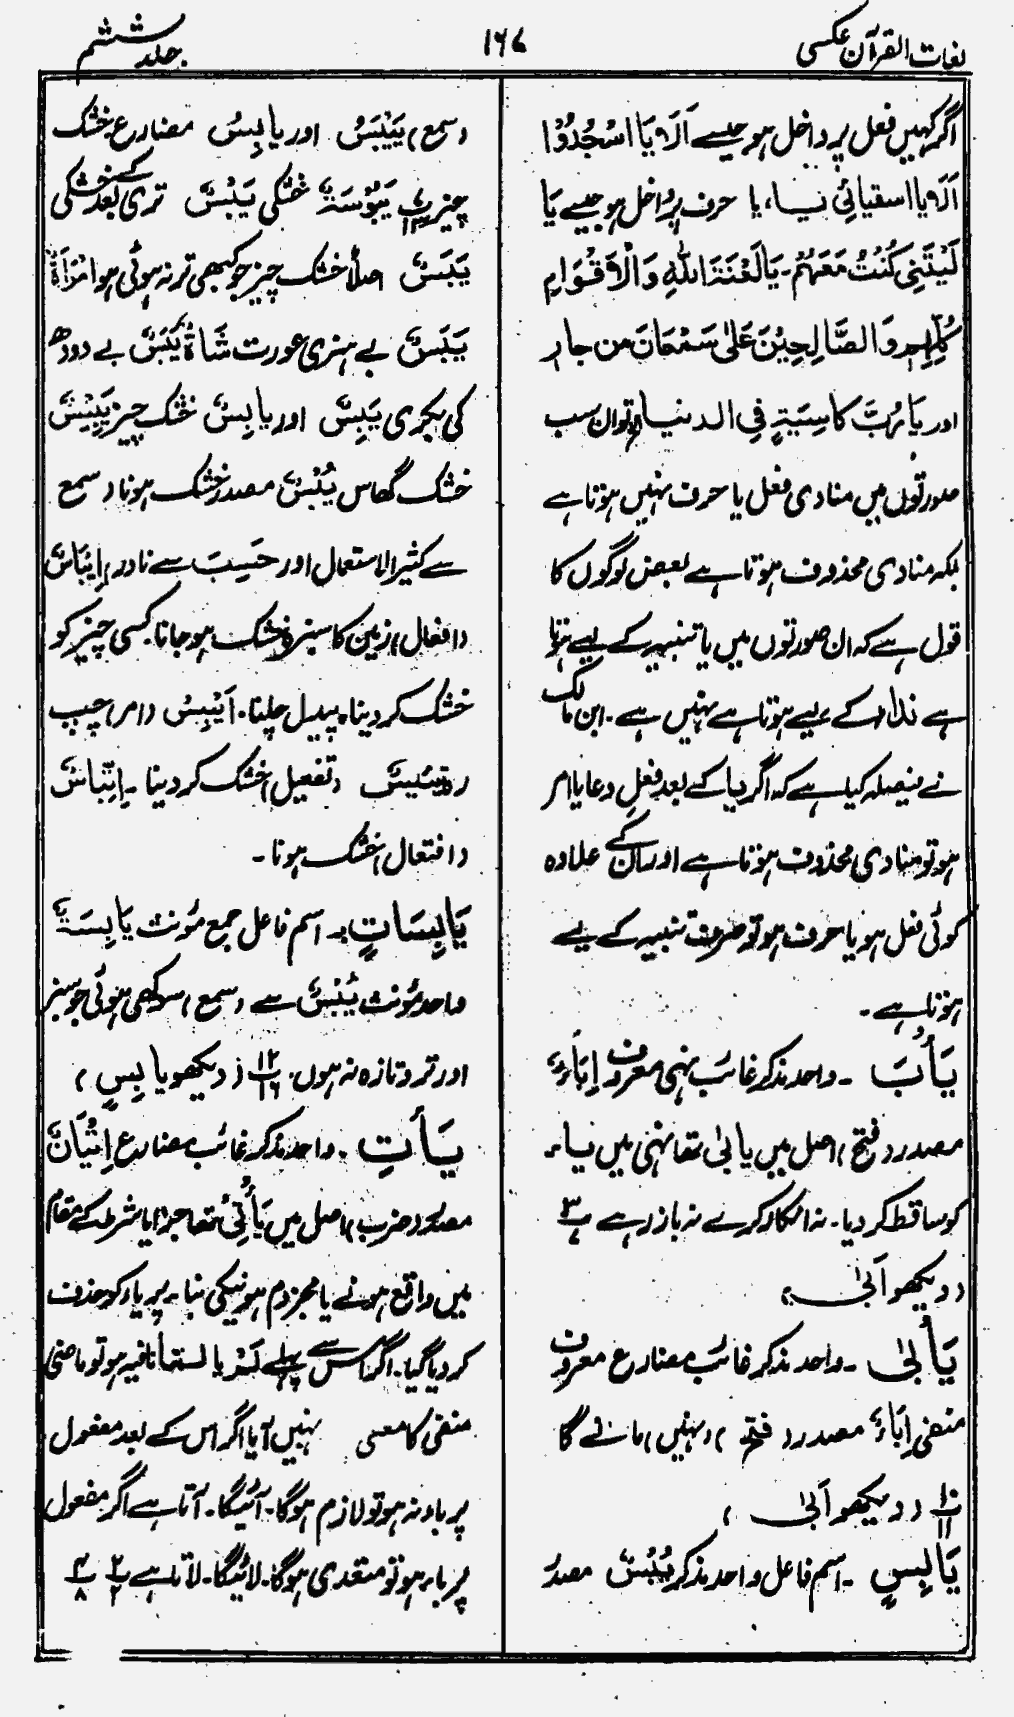 لغات القرآن عکسی
۱۶۷
جلد ششم
اگر کہیں فعل پر داخل ہو جیسے اَلَا یَا اسْجُدُوْا
اَلَا یا اسقیانی یا، یا حرف پر داخل ہو جیسے یَا
لَیْتَنِی کُنْتُ مَعَھُمْ۔ یَا لَعْنَۃَ اللہِ وَالْاَقْوَامِ
کُلِّھِمْ وَالصَّالِحِیْنَ عَلٰی سَمْعَانَ من جار
اور یَا رُبَّ کَاسِیَۃٍ فِی الدنیا تو ان سب
صورتوں میں منادی فعل یا حرف نہیں ہوتا ہے
بلکہ منادی محذوف ہوتا ہے بعض لوگوں کا
قول ہے کہ ان صورتوں میں یا تنبیہ کے لیے ہوتا
ہے نداء کے لیے ہوتا ہے نہیں ہے۔ ابن مالک
نے فیصلہ کیا ہے کہ اگر یا کے بعد فعل دعا یا امر
ہو تو منادی محذوف ہوتا ہے اور اس کے علاوہ
کوئی فعل ہو یا حرف ہو تو صرف تنبیہ کے لیے
ہوتا ہے۔
یَأْبَ ۔ واحد مذکر غائب نہی معروف اِبَاءٌ
مصدر (فتح) اصل میں یا بیٰ تھا نہی میں یاء
کو ساقط کر دیا۔ نہ انکار کرے نہ باز رہے پ ۳/۷
(دیکھو اَبیٰ)
یَأْبیٰ ۔ واحد مذکر غائب مضارع معروف
منفی اِبَاءٌ مصدر (فتح) (نہیں) مانے گا
پ ۱۰/۱۱ (دیکھو اَبیٰ)
یَابِسٍ ۔ اسم فاعل واحد مذکر یُبْسٌ مصدر
(سمع) یَیْبَسُ اور یابِسُ مضارع خشک
چیز پ یَبُوْسَۃٌ خشکی یَبْسٌ تری کے بعد خشکی
یَبَسٌ اصلاً خشک چیز جو کبھی تر نہ ہوئی ہو امْرَأَۃٌ
یَبَسٌ بے ہنری عورت شَاۃٌ یَبَسٌ بے دودھ
کی بکری یَبِسٌ اور یابِسٌ خشک چیز یَبِیْسٌ
خشک گھاس یُبْسٌ مصدر خشک ہونا (سمع
سے کثیر الاستعمال اور حَسِبَ سے نادر) اِیْبَاسٌ
(افعال) زمین کا سبزہ خشک ہو جانا کسی چیز کو
خشک کر دینا، پیدل چلنا۔ اَیْبِسْ (امر) چپ
رہ تَیْبِیْسٌ (تفعیل) خشک کر دینا۔ اِتِّبَاسٌ
(افتعال) خشک ہونا۔
یَابِسَاتٍ ۔ اسم فاعل جمع مؤنث یَابِسَۃٌ
واحد مؤنث یُبْسٌ سے (سمع) سوکھی ہوئی جو سبز
اور تر و تازہ نہ ہوں۔ پ ۱۲/۱۶ (دیکھو یابِسٍ)
یَأْتِ ۔ واحد مذکر غائب مضارع اِتْیَانٌ
مصدر (ضرب) اصل میں یَأْتِیْ تھا جزا یا شرط کے مقام
میں واقع ہونے یا مجزوم ہونیکی بنا پر یاء کو حذف
کر دیا گیا۔ اگر اس سے پہلے لَمْ یا لمّا نافیہ ہو تو ماضی
منفی کا معنی نہیں آیا اگر اس کے بعد مفعول
پر باء نہ ہو تو لازم ہوگا۔ آئیگا۔ آتا ہے اگر مفعول
پر باء ہو تو متعدی ہوگا۔ لائیگا۔ لاتا ہے پ ۲/۲ پ ۴/۸